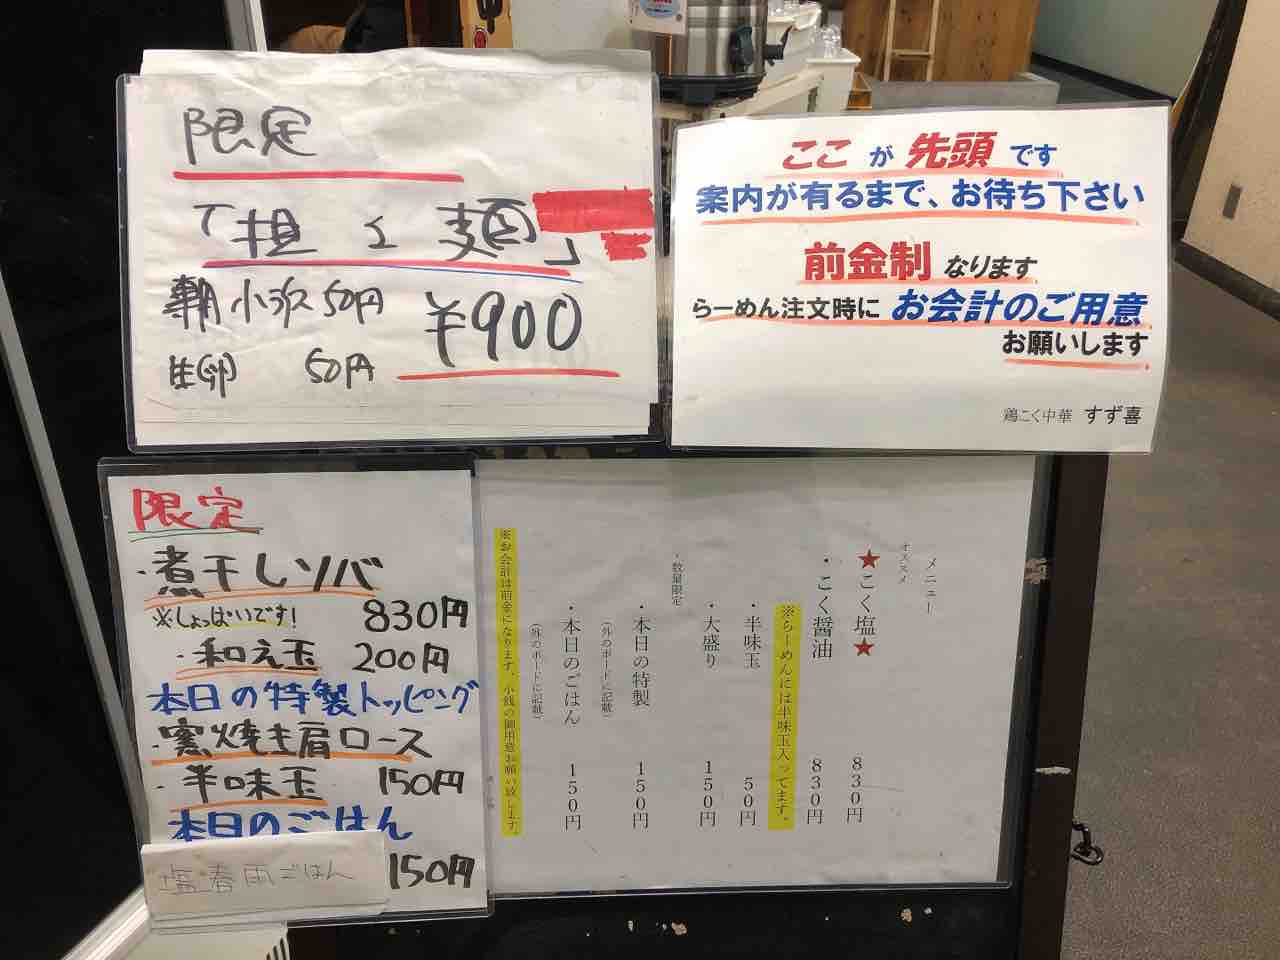 限定
「担々麺」
小次 50円
¥900
生卵 50円
ここ が 先頭 です
案内が有るまで、お待ち下さい
前金制 なります
らーめん注文時に お会計のご用意
お願いします
鶏こく中華 すず喜
限定
・煮干しソバ
※しょっぱいです! 830円
・和え玉 200円
本日の特製トッピング
・窯焼き肩ロース
・半味玉 150円
本日のごはん
塩春雨ごはん 150円
メニュー
オススメ
★こく塩★ 830円
・こく醤油 830円
※らーめんには半味玉入ってます。
・半味玉 50円
・大盛り 150円
・数量限定
・本日の特製 150円
(外のボードに記載)
・本日のごはん 150円
(外のボードに記載)
※お会計は前金になります。小銭の御用意お願い致します。